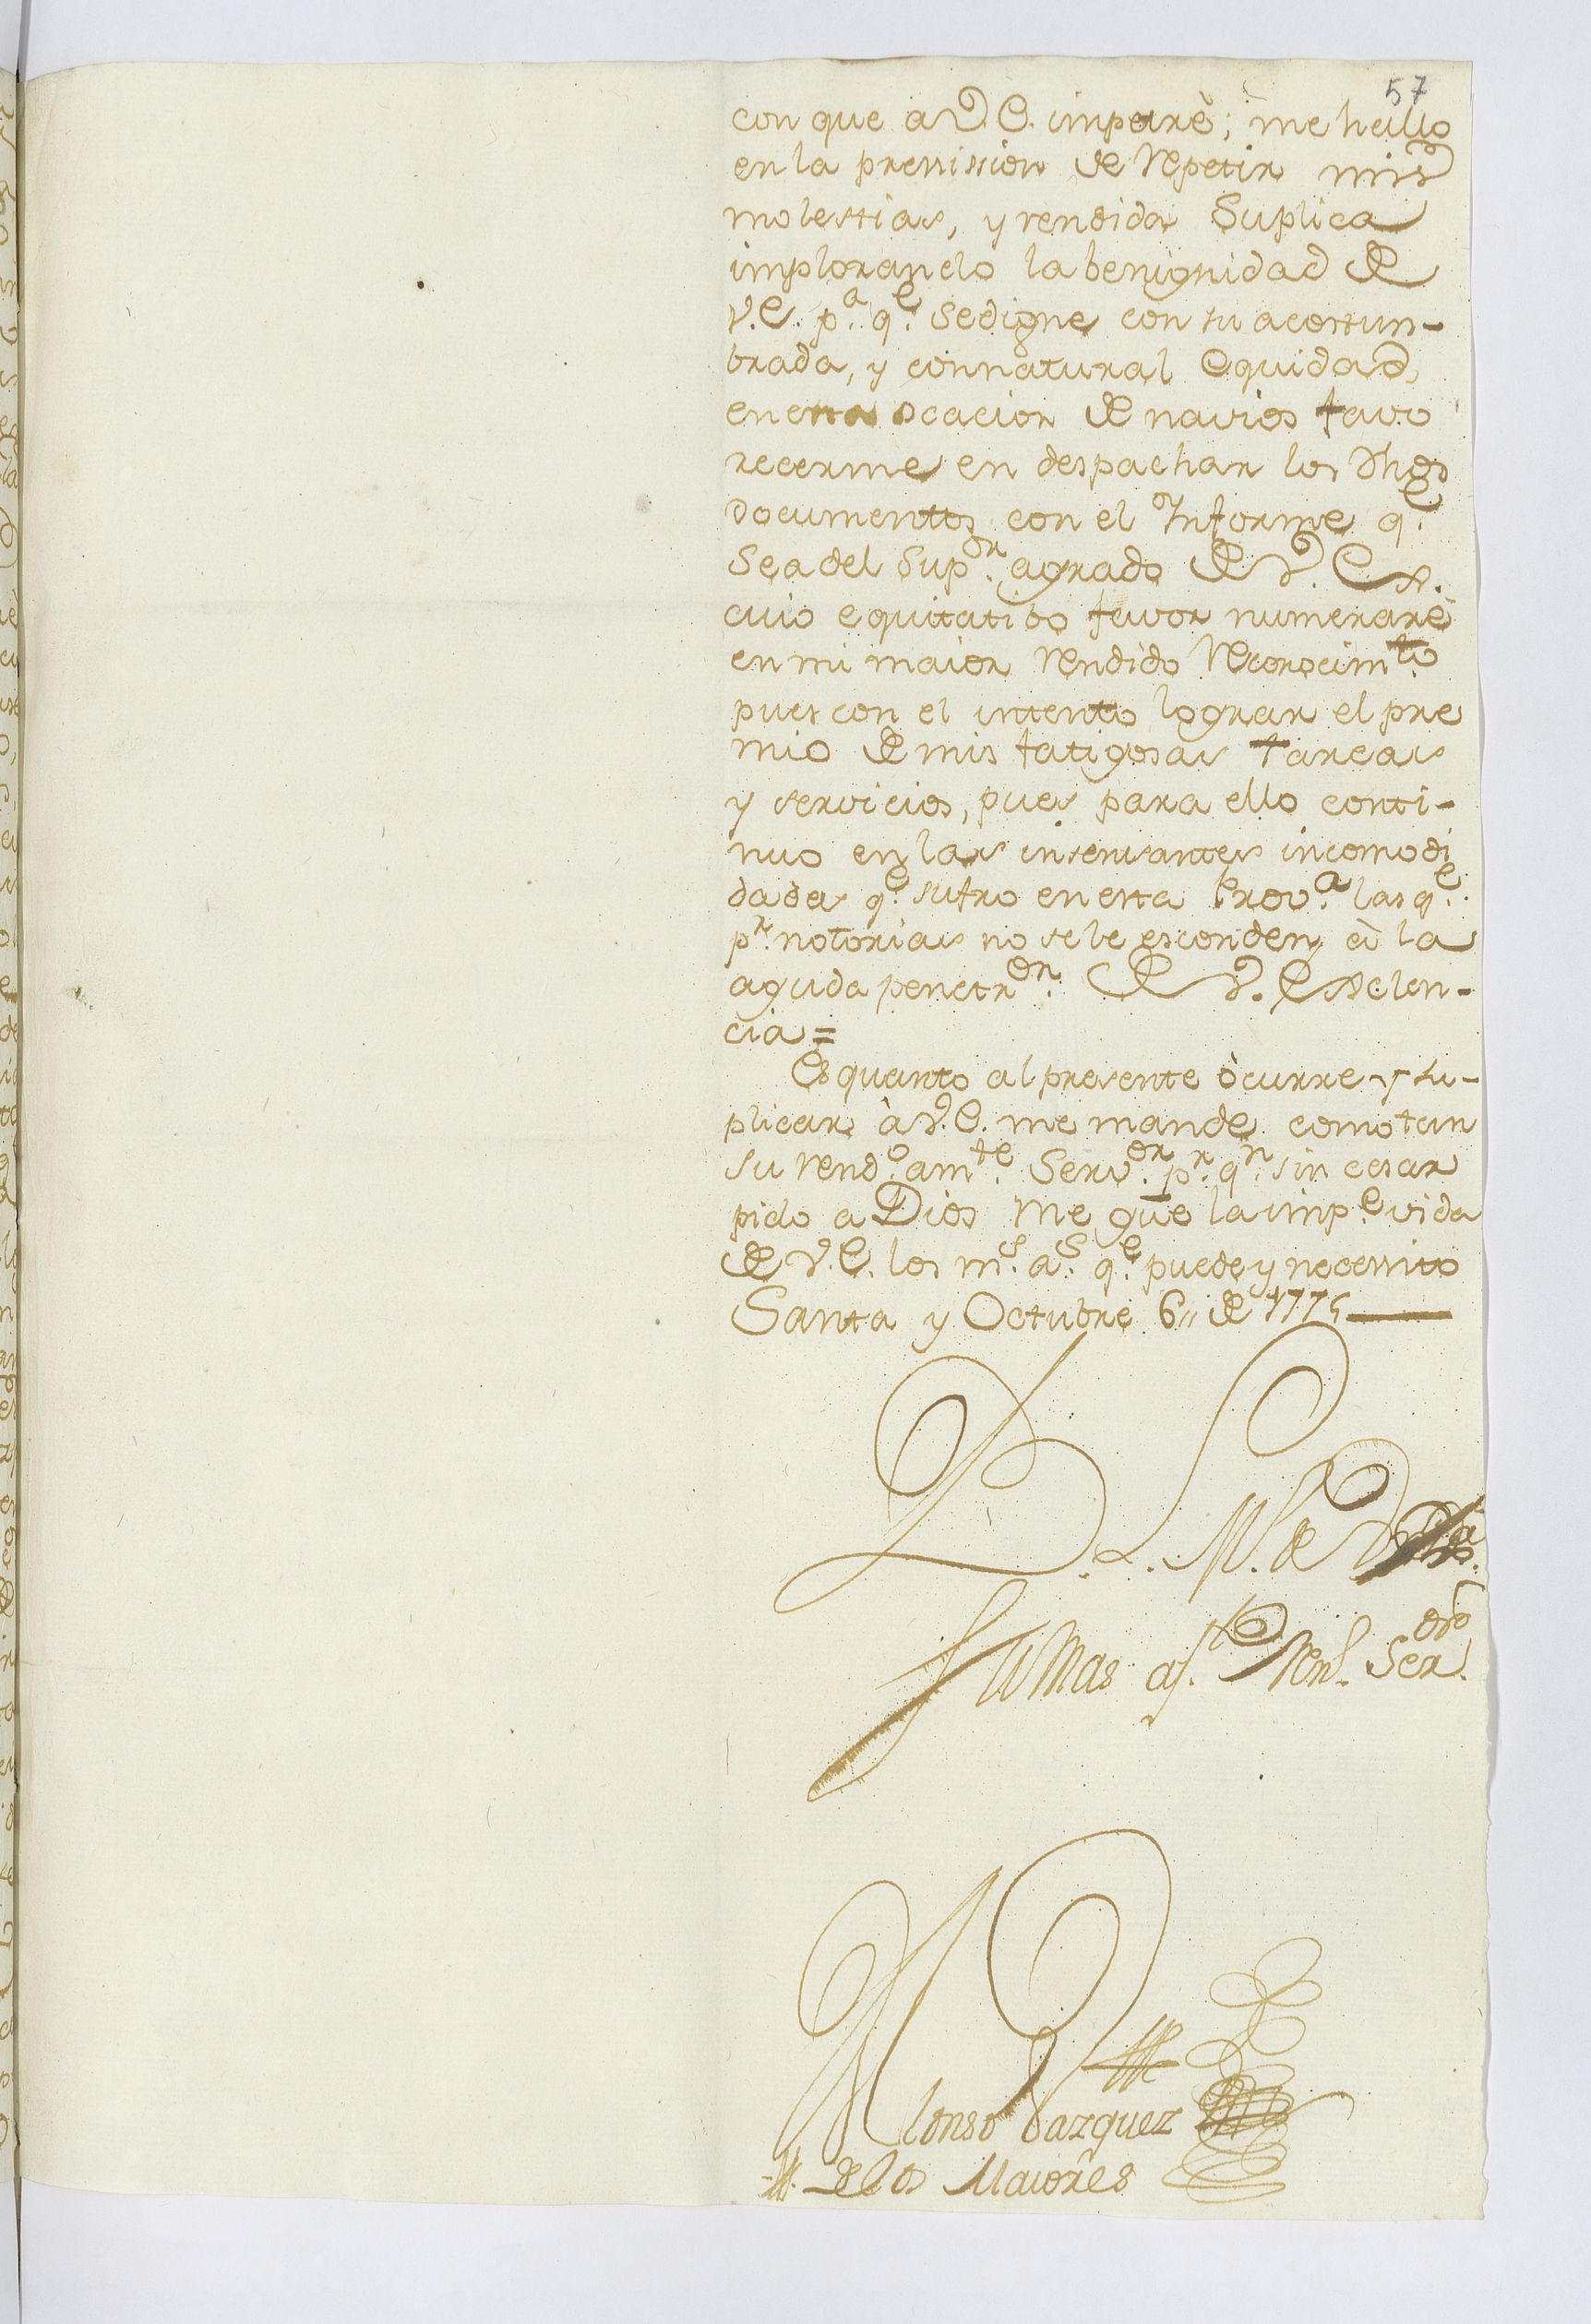 57
con que a V. E. imparè; me hallo
en la prenission de repetir mis
molestias, y rendida Suplica
implorando la benignidad de
V. E. p.ª q.e se digne con su acostun-
brada, y connatural equidad,
en esta ocacion de navios favo
recerme en despachar los Dhos
documentos con el Informe q.e
Sea del Sup.or agrado de V. Ex.
cuio equitatibo favor numerarè
en mi maior rendido reconocim.to
pues con el intento lograr el pre
mio de mis fatigosas tareas
y servicios, pues para ello conti-
nuo en las insensantes incomodi
dades q.e sufro en esta Prov.a las q.e
p.r notorias no se le esconden à la
aguda penetr.on de V. Exelen-
cia =
Es quanto al presente òcurre y su-
plicar à V. E. me mande como tan
su rend.o am.te Serv.or p.r q.n sin cesar
pido a Dios me gue la imp.e vida
de V. E. los m.s a.s q.e puede y necessito
Santa y Octubre 6,, de 1775
B. L. M. de V.
su Mas af.to Ren. Ser.
Alonso Vazquez
de los Maiores